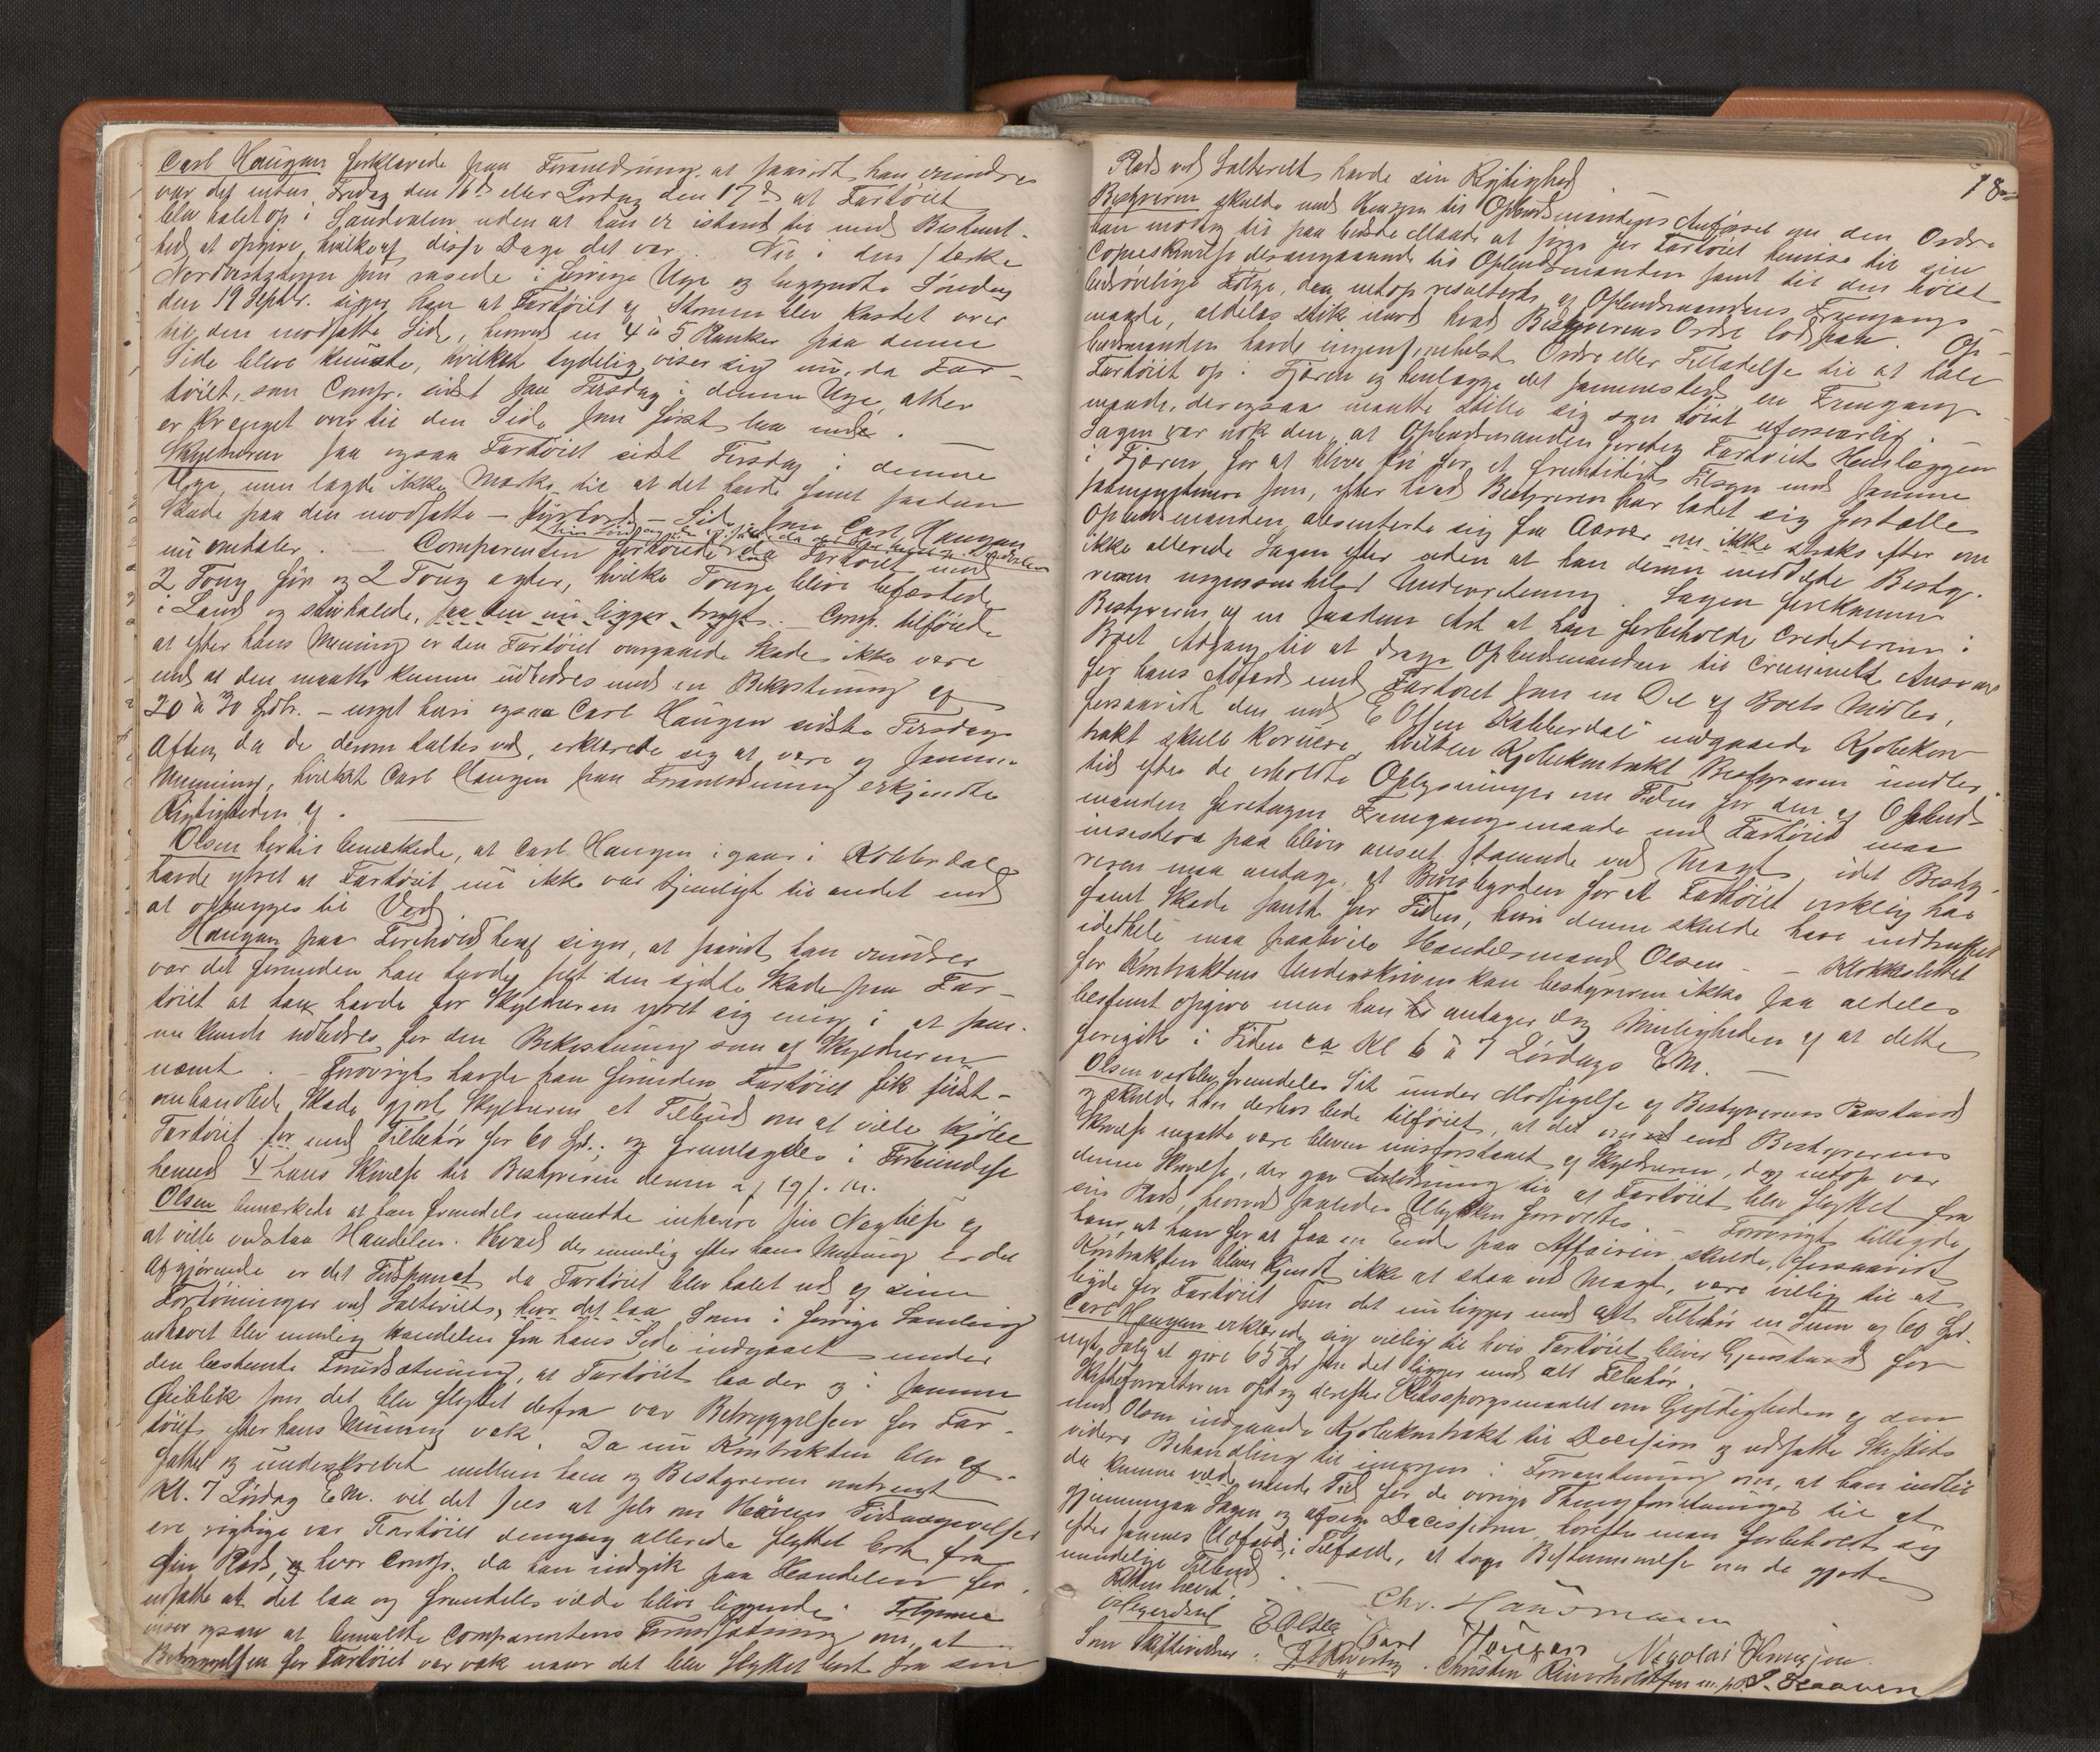 Carl Haugan forklarede paa Foranledning, at saavidt han erindrer
var det enten Fredag den 16de eller Lørdag den 17de at Fartøiet
blev halet op i Sandvalen uden at han er istand til med Bestemt-
hed at opgive, hvilke af disse Dage det var. Nu i den stærke
som rasede i forrige Uge og begyndte Søndag
den 19 Septbr. siger han at Fartøiet af Stormen blev kastet over
til den modsatte Side, hvorved en 4 à 5 Planker paa denne
Side bleve knuste, hvilket tydelig viser sig nu, da Far-
tøiet, som Comp. sidst saa Tirsdag i denne Uge, atter
er krænget over til den Side som først laa
Skyldneren saa ogsaa Fartøiet sidst Tirsdag i denne
Uge, men lagde ikke Mærke til at det havde faaet saadan
Skade paa den modsatte - Styrbord - Side som Carl Haugan
nu omtaler. - Comparenten fortøiede da Fartøiet med
2 Toug før og 2 Toug agter, hvilke Touge bleve befæstede
i Land og stivhalede, saa den nu ligger trygt. - Comp. tilføiede
at efter hans Mening er den Fartøiet overgaaede Skade ikke være
end at den maatte kunne udbedres med en Bekostning af
20 à 30 Spdlr. - noget hvori ogsaa Carl Haugen sidste Tirsdag
Aften, da de derom taltes ved, erklærede sig at være af samme
Mening, hvilket Carl Haugen paa Foranledning erkjendte
Rigtigheden af.
Olsen hertil bemærkede, at Carl Haugen igaar i Kobberdal
havde ytret at Fartøiet nu ikke var tjenligt til andet end
at ophugges til Ved
Haugan paa Foreholdt heraf siger, at saavidt han erindrer
var det førenden han havde seet den sidste Skade paa Far-
tøiet at han havde for Skyldneren ytret sig enig i at sam-
me kunde udbedres for den Bekostning som af Skyldneren
nævnt. - Forøvrigt havde han førenden Fartøiet fik sidst-
omhandlede Skade gjort Skyldneren et Tilbud om at ville kjøbe
Fartøiet for med Tilbehør for 60 Spd.; og fremlagdes i Forbindelse
hermed 4 hans Skrivelse til Bestyreren derom af 19/9 n.
Olsen bemærkede at han fremdeles maatte inhærere sin Negtelse af
at ville vedstaa Handelen. Hvad der nemlig efter hans Mening er det
Afgjørende er det Tidspunct da Fartøiet blev halet ud af sine
Fortøininger ved Saltevelts, hvor det laa. Som i forrige Samling
udhævet blev nemlig Handelen fra hans Side indgaaet under
den bestemte Forudsætning, at Fartøiet laa der og i samme
Øieblik som det blev flyttet derfra var Betryggelsen for Far-
tøiet efter hans Mening væk. Da nu Kontrakten blev af-
fattet og underskrevet mellem ham og Bestyreren omtrent
Kl. 7 Lørdag E.M. vil det sees at selv om Tidsangivelser
ere rigtige var Fartøiet dengang allerede flyttet bort fra
sin Plads, og hvor Comp. da han indgik paa Handelen for-
udsatte at det laa og fremdeles vilde blive liggende.
viser ogsaa at bemeldte Comparentens Forudsætning om, at
Betryggelsen for Fartøiet var væk naar det blev flyttet bort fra sin
18
Plads ved Saltevelt havde sin Rigtighed
Bestyreren skulde med Hensyn til Opbudsmandens Anførsel om den Ordre
han modtog til paa bedste Maade at sørge for Fartøiet henvise til sin
Copieskrivelse desangaaende til Opbudsmanden samt til den høist
bedrøvelige Følge, den netop resulterte af Opbudsmandens Fremgangs-
maade, aldeles stik imod hvad Bestyrerens Ordre lød paa. Op-
budsmanden havde ingensomhelst Ordre eller Tilladelse til at hale
Fartøiet op i Fjæren og henlægge det sammesteds, en Fremgangs-
maade, der ogsaa maatte stille sig som høist uforsvarlig.
Sagen var nok den, at Opbudsmanden foretog Fartøiets Henlæggen
i Fjæren for at blive fri for et fremtidigt Tilsyn med samme
som, efter hvad Bestyreren har ladet sig fortælle
Opbudsmanden absenterte sig fra Aarnes om ikke straks efter om
ikke allerede Dagen efter uden at han derom meddelte Besty-
reren nogensomhelst Underretning. Sagen forekommer
Bestyreren af en saadan Art at han forbeholder Creditorerne i
Boet Adgang til at drage Opbudsmanden til Criminelt Ansvar
for hans Adfærd med Fartøiet som en Del af Boets Midler,
forsaavidt den med E Olsen Kobberdal indgaaede Kjøbekon-
trakt skulde kornere, hvilken Kjøbekontrakt Bestyreren imidler-
tid efter de erholdte Oplysninger om Tiden for den af Opbuds-
manden foretagne Fremgangsmaade med Fartøiet maa
insistere paa bliver anseet staaende ved Magt, idet Besty-
reren maa antage, at Bevisbyrden for at Fartøiet virkelig har
faaet Skade samt for Tiden, hvori denne skulde have indtruffet
idethele maa paahvile Handelsmand Olsen. - Klokkeslettet
for Kontraktens Underskriven kan bestyreren ikke saa aldeles
bestemt opgive men han antager dog Muligheden af at dette
foregik i Tiden ca Kl 6 à 7 Lørdags E.M. -
Olsen vedblev fremdeles Sit under Modsigelse af Bestyrerens Paastand
og skulde han derhos bede tilføiet, at det om end Bestyrerens
Skrivelse maatte være bleven misforstaaet af Skyldneren, dog netop var
denne Skrivelse, der gav Anledning til at Fartøiet blev flyttet fra
sin Plads, hvorved saaledes Ulykken forvoldtes. - Forøvrigt tilbyder
han, at han for at faa en Ende paa Affairen skulde, forsaavidt
Kontrakten bliver kjendt ikke at staa ved Magt, være villig til at
byde for Fartøiet som det nu ligger med alt Tilbehør en Sum af 60 Spd.
Carl Haugan erklærede sig villig til hvis Fartøiet bliver Gjenstand for
nyt Salg at give 65 Spd som det ligger med alt Tilbehør.
Skifteforvalteren optog derefter Retsspørgsmaalet om Gyldigheden af den
med Olsen indgaaede Kjøbekontrakt til Decision og udsatte Skiftets
videre Behandling til imorgen i Forventning om, at han indtil
da kunne vilde vinde Tid for de øvrige Thingforretninger til at
gjennemgaa Sagen og afsige Decisionen, hvorefter man forbeholdt sig
efter sammes Udfald, i Tilfælde, at tage Bestemmelse om de gjorte
mundelige Tilbud.
Retten hævet
Chr. Hausmann
E Olsen Carl Haugan Nagolai Henrigsen
Som Skiftevidner: Christen Reinholdtsen m.p.P. S. Haaven